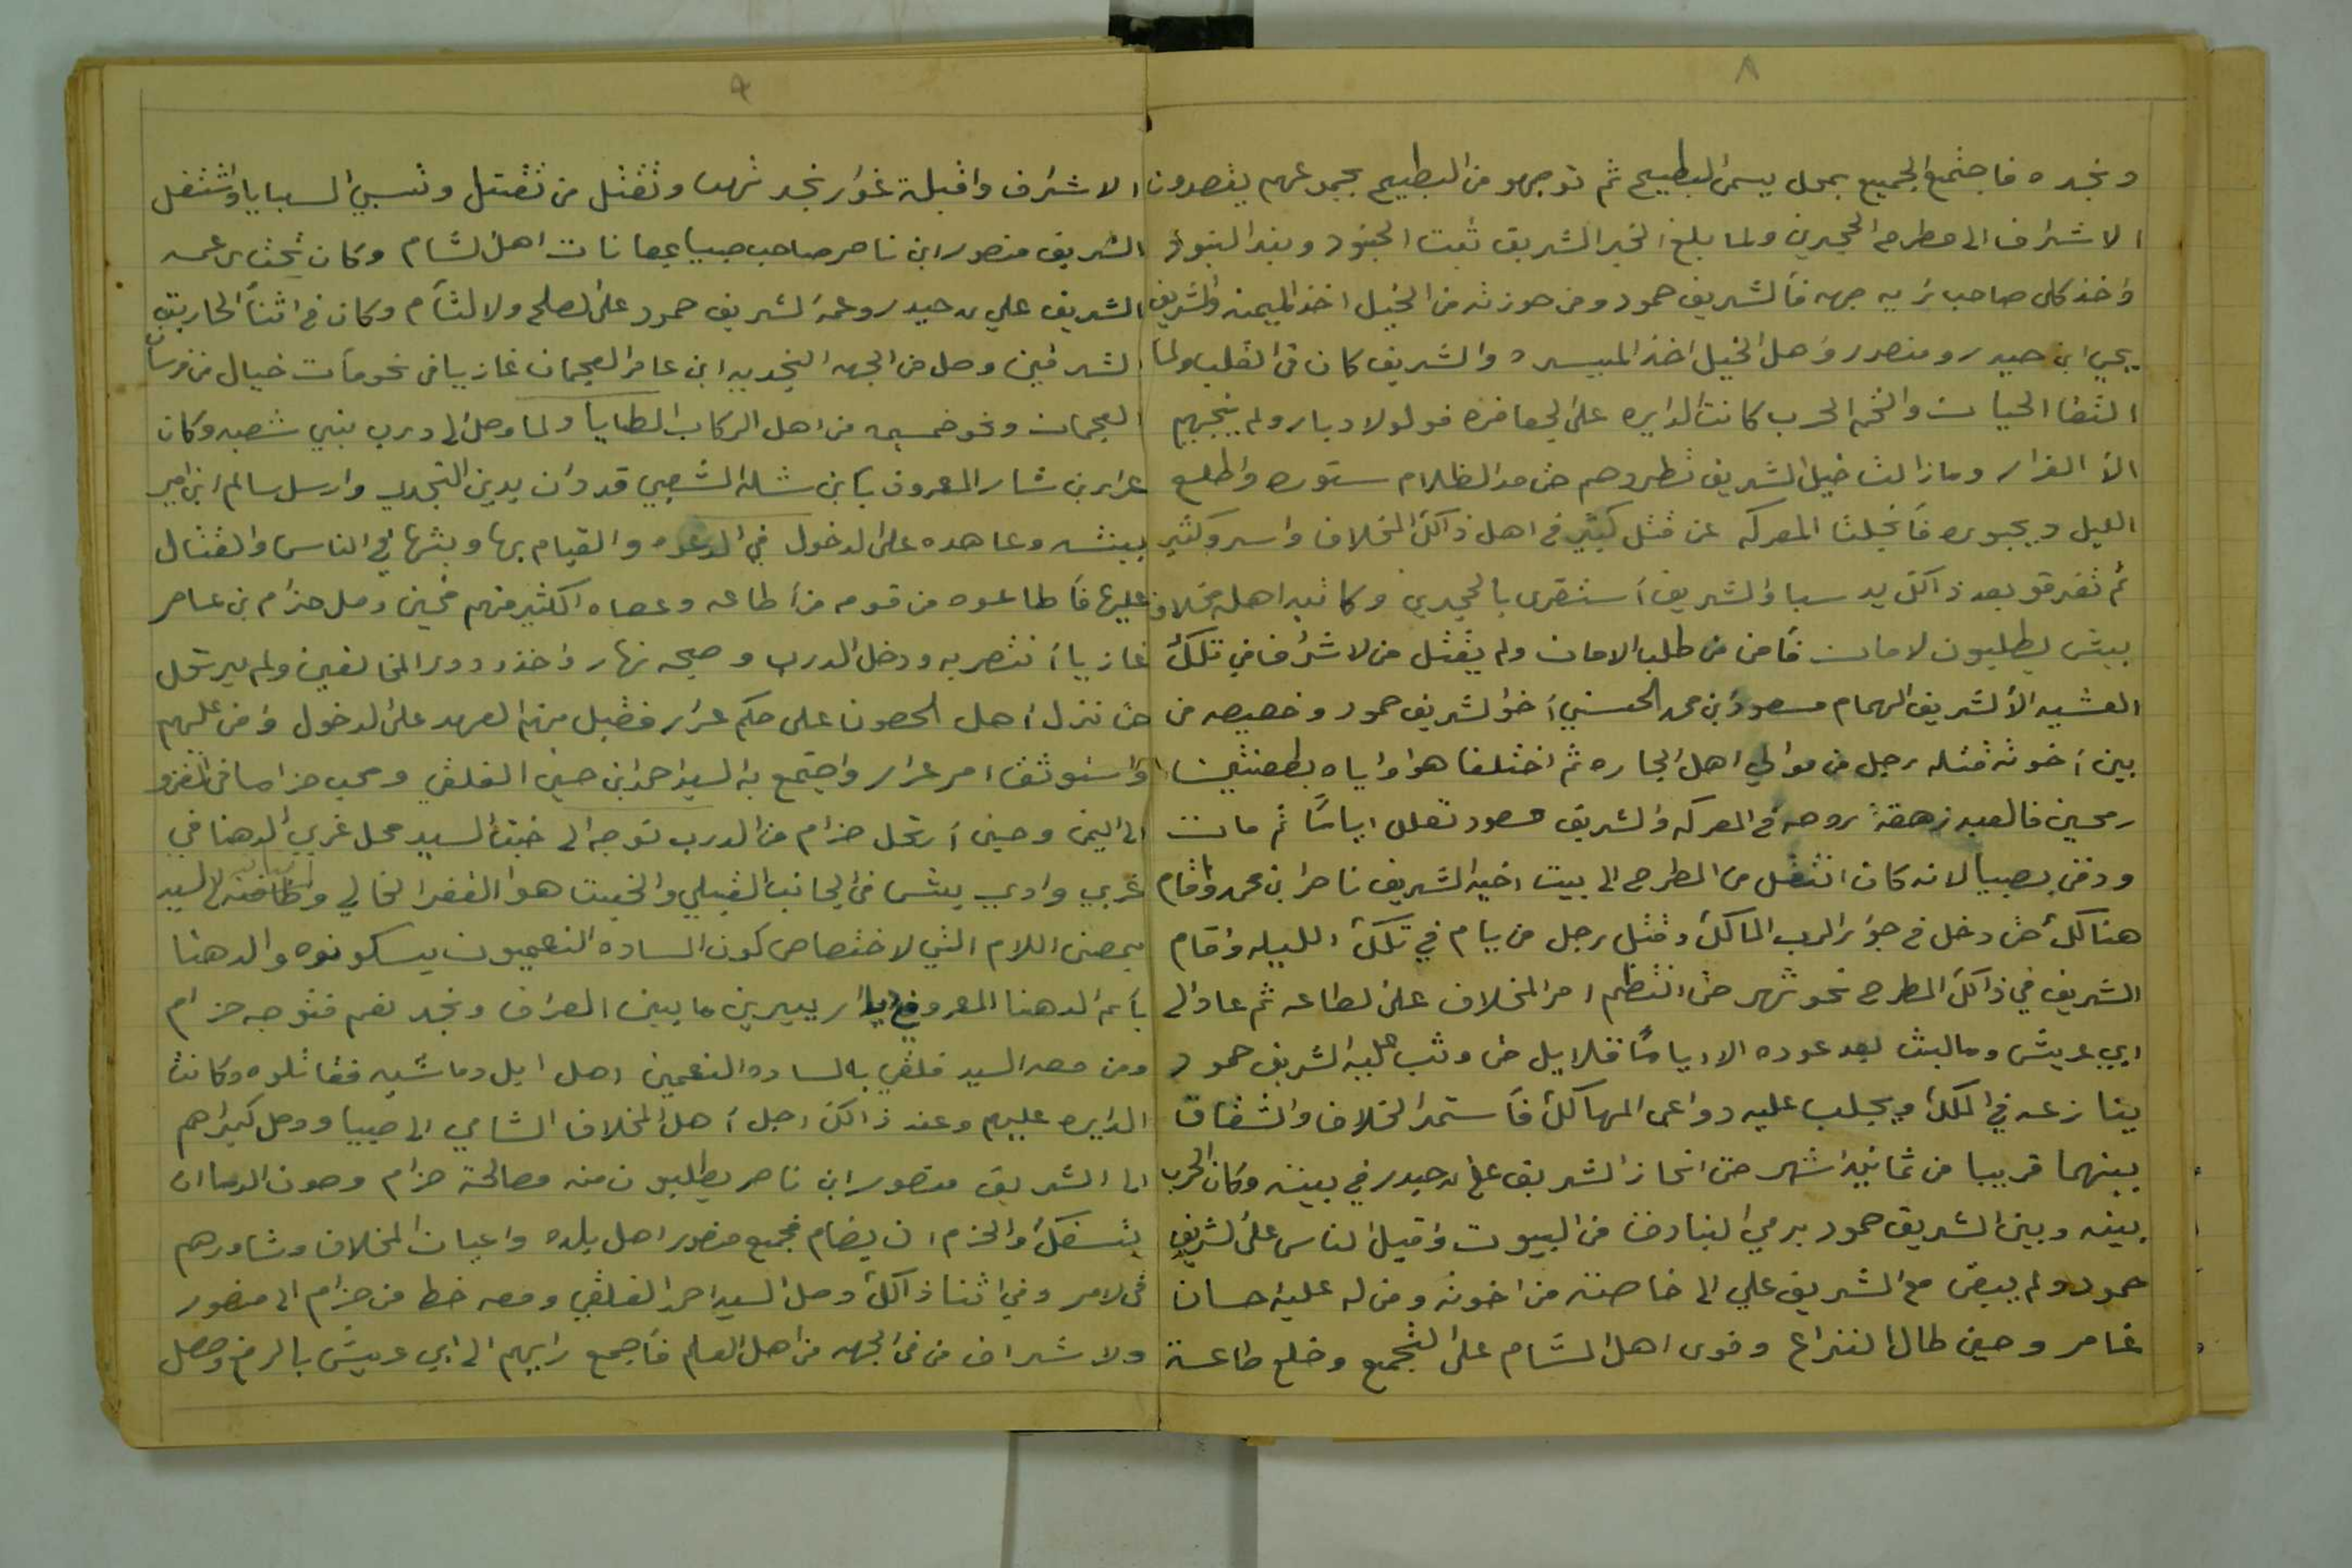 ٨
ونجده فاجتمع الجميع بمحل يسمى البطيح ثم توجهو من البطيح بجموعهم يقصدون
الاشراف الى مطرح الحجرين ولما بلغ الخبر الشريف ثبت الجنود وبند البنود
واخذ كل صاحب ترية جهه فالشريف حمود ومن حوزته من الخيل اخذ الميمنه والشريف
يحيي ابن حيدر ومنصور واهل الخيل اخذ الميسره والشريف كان في القلب ولما
التقا الحيان والتحم الحرب كانت الدايره على الجعافره فولو لادبار ولم ينجيهم
الا الفرار ومازالت خيل الشريف تطردهم حتى مد الظلام ستوره واطلع
الليل ديجوره فانجلت المعركه عن قتل كثير في اهل ذالك المخلاف واسر وكثير
ثم تفرقو بعد ذالك يد سبا والشريف استقرى بالحجرين وكاتبه اهل مخلاف
بيش يطلبون لامان فامن من طلب الامان ولم يقتل من لاشراف في تلك
العشيه الا الشريف الهمام مسعود بن محمد الحسني اخو الشريف حمود وخصيصه من
بين اخوته قتله رجل من موالي اهل الجاره ثم اختلفا هوا واياه بطعنتين
رمحين فالعبد زهقة روحه في المعركه والشريف مسعود تعلل اياماً ثم مات
ودفن بصبيا لانه كان انتقل من المطرح الى بيت اخيه الشريف ناصر ابن محمد واقام
هنالك حتى دخل في جوار الرب المالك وقتل رجل من يام في تلك الليله واقام
الشريف في ذالك المطرح نحو شهر حتى انتظم امر المخلاف على لطاعه ثم عاد الى
ابي عريش ومالبث بعد عوده الا اياماً قلايل حتى وثب عليه الشريف حمود
ينازعه في الملك ويجلب عليه دواعى المهالك فاستمر الخلاف والشقاق
بينهما قريبا من ثمانيه اشهر حتى انحاز الشريف علي بن حيدر في بيته وكان الحرب
بينه وبين الشريف حمود برمي البنادق من البيوت واقبل الناس على الشريف
حمود ولم يبقى مع الشريف علي الى خاصته من اخوته ومن له عليه احسان
غامر وحين طال النزاع وقوى اهل الشام على التجمع وخلع طاعة
٩
الاشراف واقبلة غوار نجد تنهب وتقتل من تقتل وتسبي السبايا واشتغل
الشريف منصور ابن ناصر صاحب صبيا بمعانات اهل لشام وكان تحت يرعمه
الشريف علي بن حيدر وعمه لشريف حمود على لصلح ولالتأم وكان في اثنأ الحاريق
الشرقين وصل من الجهه النجديه ابن عامر العجمان غازيا في نحو مأت خيال من فرسان
العجمان ونحو خمسميه من اهل الركاب المطايا ولما وصل الى درب بني شعبه وكان
عرار بن شار المعروف بابن شله الشعبي قد دان بدين النجدي وارسل سالم ابن امير
ببيشه وعاهده على الدخول في الدعوه والقيام بها وبثها في الناس والقتال
عليها فاطاعوه من قومه من اطاعه وعصاه الكثير منهم فحين وصل حزام بن عامر
غازيا انتصر به ودخل الدرب وصبحه نهار واخذ دور المخالفين ولم يرتحل
حتى نزل اهل الحصون على حكم عرار فقبل منهم العهد على لدخول وامن عليهم
واستوثقا امر عرار واجتمع به السيد احمد ابن حسن الفلقي وصحب حزاما في الغزو
الى اليمن وحين ارتحل حزام من الدرب توجه الى خبت السيد محل غربي الدهنا في
غربي وادي بيش من الجانب القبلي والخبت هو القفر الخالي واضافته الى السيد
بمعنى اللام التي لاختصاص كون الساده النعميون يسكونوه والدهنا
باسم الدهنا المعروفه بديار يبرين ما بين العراق ونجد نعم فتوجه حزام
ومن معه السيد فلقي بالساده النعمين اهل ابل وماشيه فقاتلوه وكانت
الدايره عليهم وعند ذالك اجل اهل المخلاف الشامي الى صبيا ووصل كبيراهم
الى الشريف منصور ابن ناصر يطلبون منه مصالحة حزام وصون الدماان
تسفك والحزم ان يضام فجمع منصور اهل بلده واعيان المخلاف وشاورهم
فى لامر وفي اثنا ذالك وصل السيد احمد الفلقي ومعه خط من حزام الى منصور
ولاشراف من في الجهه من اهل العلم فاجمع رايهم الى ابي عريش بالرفع وصل